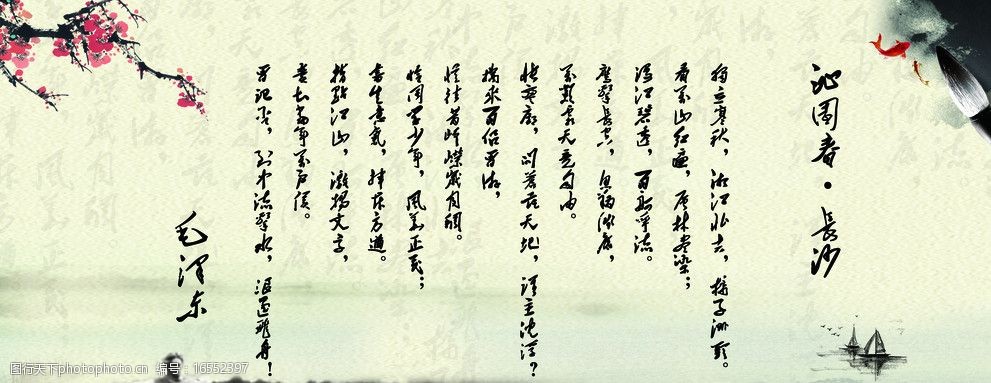 沁园春·长沙
独立寒秋，湘江北去，橘子洲头。
看万山红遍，层林尽染；
漫江碧透，百舸争流。
鹰击长空，鱼翔浅底，
万类霜天竞自由。
怅寥廓，问苍茫大地，谁主沉浮？
携来百侣曾游，
忆往昔峥嵘岁月稠。
恰同学少年，风华正茂；
书生意气，挥斥方遒。
指点江山，激扬文字，
粪土当年万户侯。
曾记否，到中流击水，浪遏飞舟！
毛泽东
图行天下photophoto.cn 编号：16552397